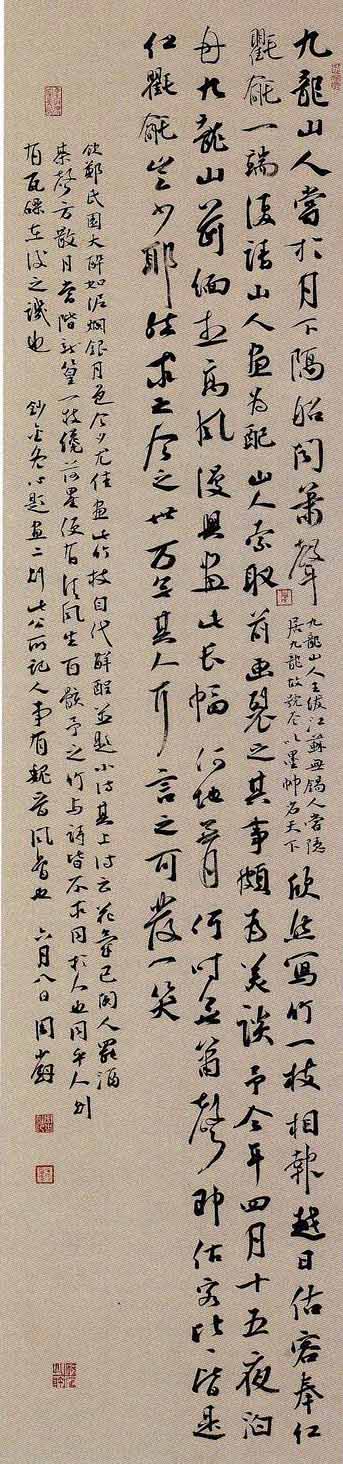 九龍山人嘗於月下隔船聞簫聲
九龍山人王紱江蘇無錫人嘗隱
居九龍故號尤以墨竹名天下
欣然寫竹一枝相報越日估客奉紅
氍毹一端復請山人畫為配山人索取前畫裂之其事頗為美談予今年四月十五夜泊
舟九龍山前緬想高風漫興畫此長幅何地無月何時無簫聲即估客比比皆是
紅氍毹豈少耶然求之今之世万无其人耳言之可發一笑
飲鄭氏園大醉如泥爛銀月色今夕尤佳畫此竹枝自代解酲並題小詩其上詩云花氣已闌人罷酒
琴方歇月當階新篁一枝纔落墨便有清風生百骸予之竹与詩皆不求同於人也同乎人則
有瓦礫在後之譏也 鈔金冬心題畫二則此公所記人事有魏晉風者也 六月八日 周